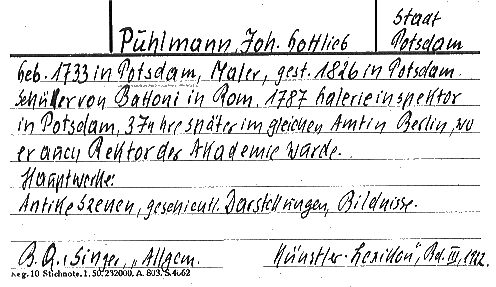 Puhlmann, Joh. Gottlieb
Stadt
Potsdam
Geb. 1733 in Potsdam, Maler, gest. 1826 in Potsdam.
Schüler von Battoni in Rom, 1787 Galerieinspektor
in Potsdam, 3 Jahre später im gleichen Amt in Berlin, wo
er auch Rektor der Akademie wurde.
Hauptwerke:
Antike Szenen, geschichtl. Darstellungen, Bildnisse.
B.Q.: Singer, „Allgem. Künstler-Lexikon", Bd. III, 1922.
Reg. 10 Stichnote. 1. 50. 232000. A. 803. S. 4662